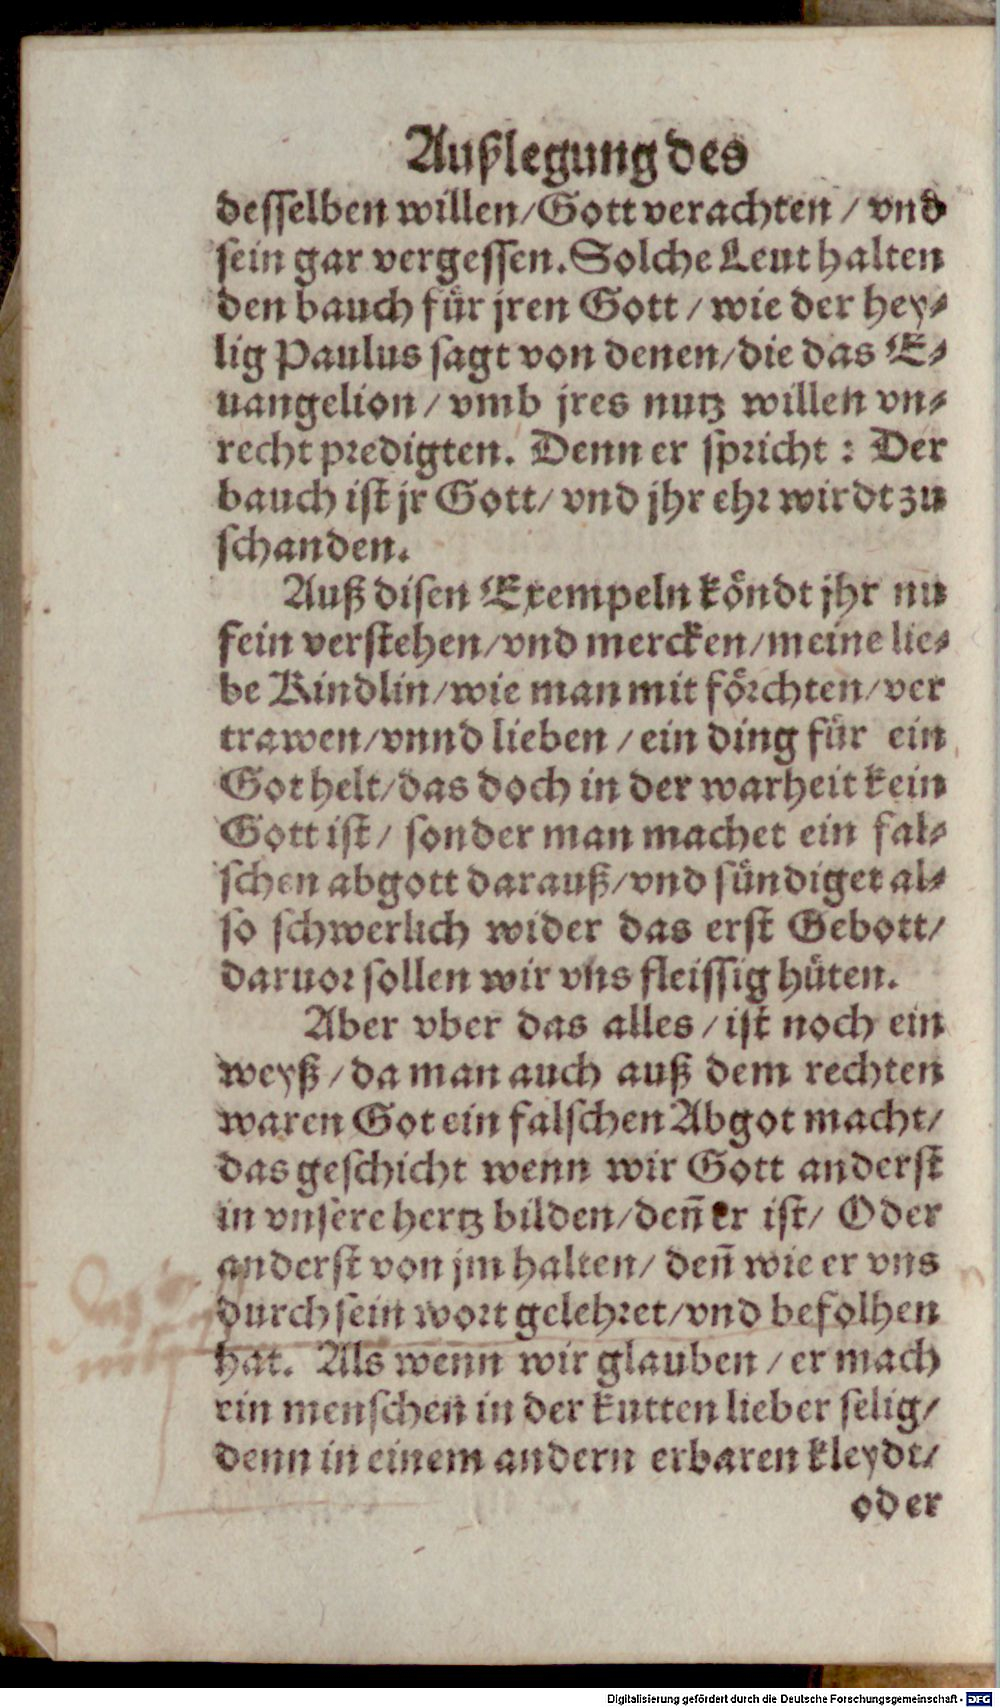 Außlegung des
desselben willen/Gott verachten / vnd
sein gar vergessen. Solche Leut halten
den bauch für jren Gott / wie der hey⸗
lig Paulus sagt von denen/die das E⸗
uangelion / vmb jres nutz willen vn⸗
recht predigten. Denn er spricht : Der
bauch ist jr Gott/ vnd jhr ehr wirdt zu
schanden.
Auß disen Exempeln köndt jhr nu
fein verstehen/vnd mercken/meine lie⸗
be Kindlin/wie man mit förchten/ver
trawen/vnnd lieben / ein ding für ein
Got helt/das doch in der warheit kein
Gott ist/ sonder man machet ein fal⸗
schen abgott darauß/vnd sündiget al⸗
so schwerlich wider das erst Gebott/
daruor sollen wir vns fleissig hüten.
Aber vber das alles / ist noch ein
weyß / da man auch auß dem rechten
waren Got ein falschen Abgot macht/
das geschicht wenn wir Gott anderst
in vnsere hertz bilden/deñ er ist/ Oder
anderst von jm halten/ deñ wie er vns
durch sein wort gelehret/vnd befolhen
hat. Als wenn wir glauben / er mach
ein menschen in der kutten lieber selig/
denn in einem andern erbaren kleydt/
oder
Digitalisierung gefördert durch die Deutsche Forschungsgemeinschaft - DFG